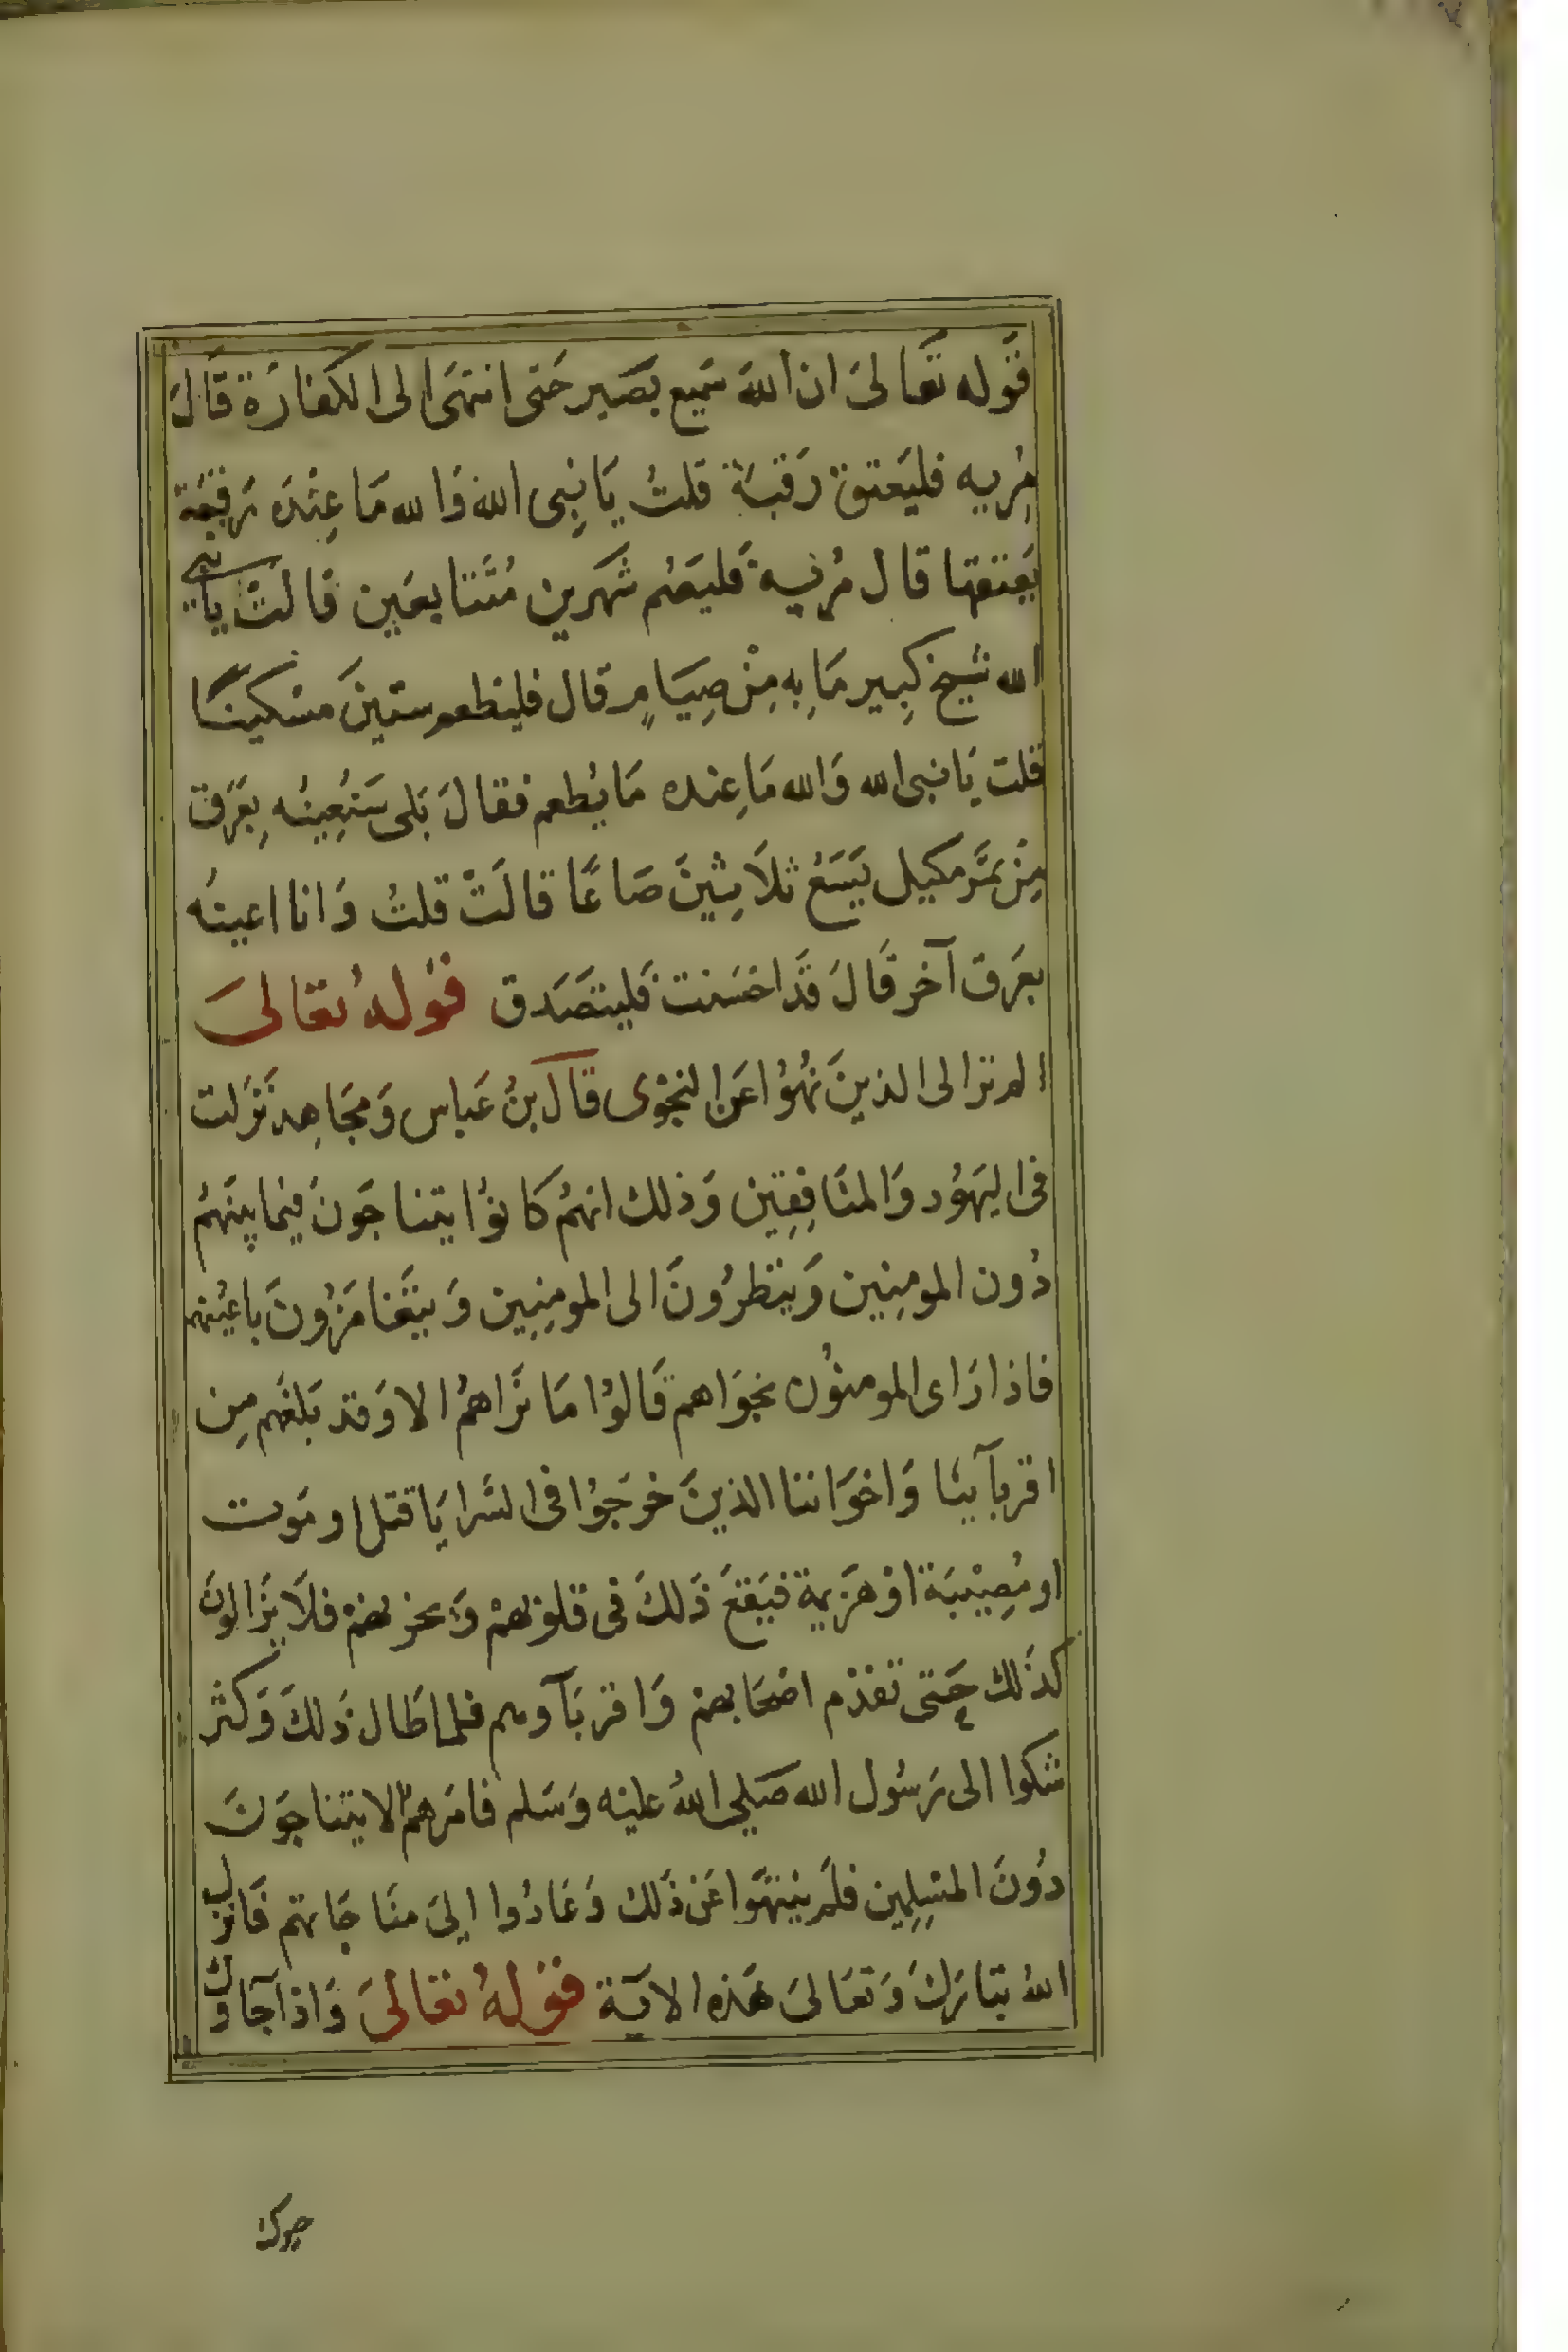 قَوله تَعَالىَ ان اللهَ سَمِيع بَصَير حَتى انتهَى الى الكفارَة قَالَ
مُريه فليَعتق رَقبَة قلتُ يَا نِبى الله وَالله مَا عِنْدَه رَقبَة
يَعتقها قال مُريه فَليَصُم شهرين مُتَتابعَين قالَتْ يا نبي
الله شيخ كِبير مَا بِه مِنْ صِيَامٍ قال فليطعم ستينَ مسْكينًا
قلت يَا نبى الله وَالله مَا عِنده مَا يُطعم فقالَ بَلى سَنُعِينُه بِعَرَق
مِنْ تمَر مكيل يَسَعُ ثلاَثِينَ صَاعًا قالَتْ قلتُ وَانا اعينُه
بعَرَق آخر قَالَ قَد احْسَنت فَليتصَدق قوله تعالىَ
الم تر الى الذينَ نُهُوْا عَن النجْوى قال بنُ عَباس وَمجَاهِد نَزَلت
فى اليَهوُد وَالمنَافِقِين وَذلك انهمُ كانوُا يتناجَونَ فيما بينَهمُ
دُون المومِنِين وَينظرُونَ الى المومِنِين وَيتَغامَزُونَ باعيُنهم
فاذا رَاى المومنوُن نجوَاهم قَالوُا مَا نرَاهمُ الا وَقد بَلغَهم مِن
اقربآينَا وَاخوَاننا الذينَ خرَجوُا فى السَرايَا قتل او مَوت
او مُصِيْبَة اوْ هَزيمة فيَقَعَ ذَلكَ فى قلوْبهمْ وَيحزنهمْ فلاَ يَزالونَ
كذَلك حَتى تقدَم اصْحَابهمْ وَاقربَآوهم فلما طَال ذَلكَ وَكثر
شكوا الى رَسُول الله صَلي اللهُ عليْه وَسَلم فامَرهمْ الا يتناجَونَ
دُونَ المسِلِمِين فلمَ يَنتهَوا عَنْ ذَلك وَعَادُوا الىَ منَاجَاتهم فَانزل
اللهُ تبَارَكَ وَتعَالىَ هَذه الايَة قوْلهُ تعَالىَ وَاذا جَآاوك
جوك